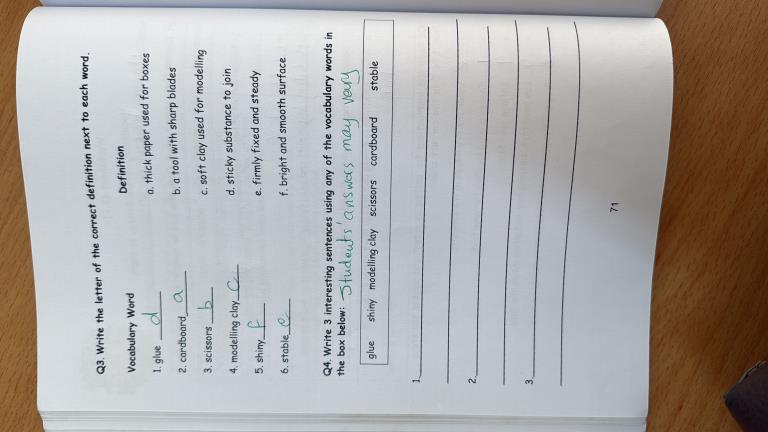 Q3. Write the letter of the correct definition next to each word.
Vocabulary Word Definition
1. glue d a. thick paper used for boxes
2. cardboard a b. a tool with sharp blades
3. scissors b c. soft clay used for modelling
4. modelling clay c d. sticky substance to join
5. shiny f e. firmly fixed and steady
6. stable e f. bright and smooth surface
Q4. Write 3 interesting sentences using any of the vocabulary words in
the box below: Students' answers may vary
glue shiny modelling clay scissors cardboard stable
1.
2.
3.
71